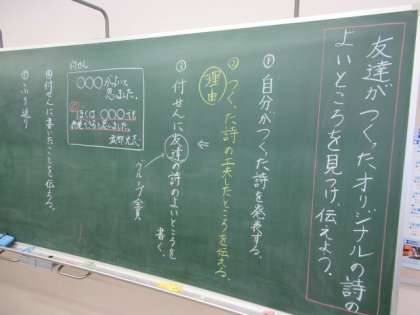 友達がつくった、オリジナルの詩の
よいところを見つけ、伝えよう。
① 自分がつくった詩を発表する。
② つくった詩の工夫したところを伝える。
理由
③ 付せんに友達の詩のよいところを
書く。
グループ全員
付せん
○○○がよいと
思いました。
ぼくは、○○○でも
④ 付せんに書いたことを伝える。
⑤ ふり返り